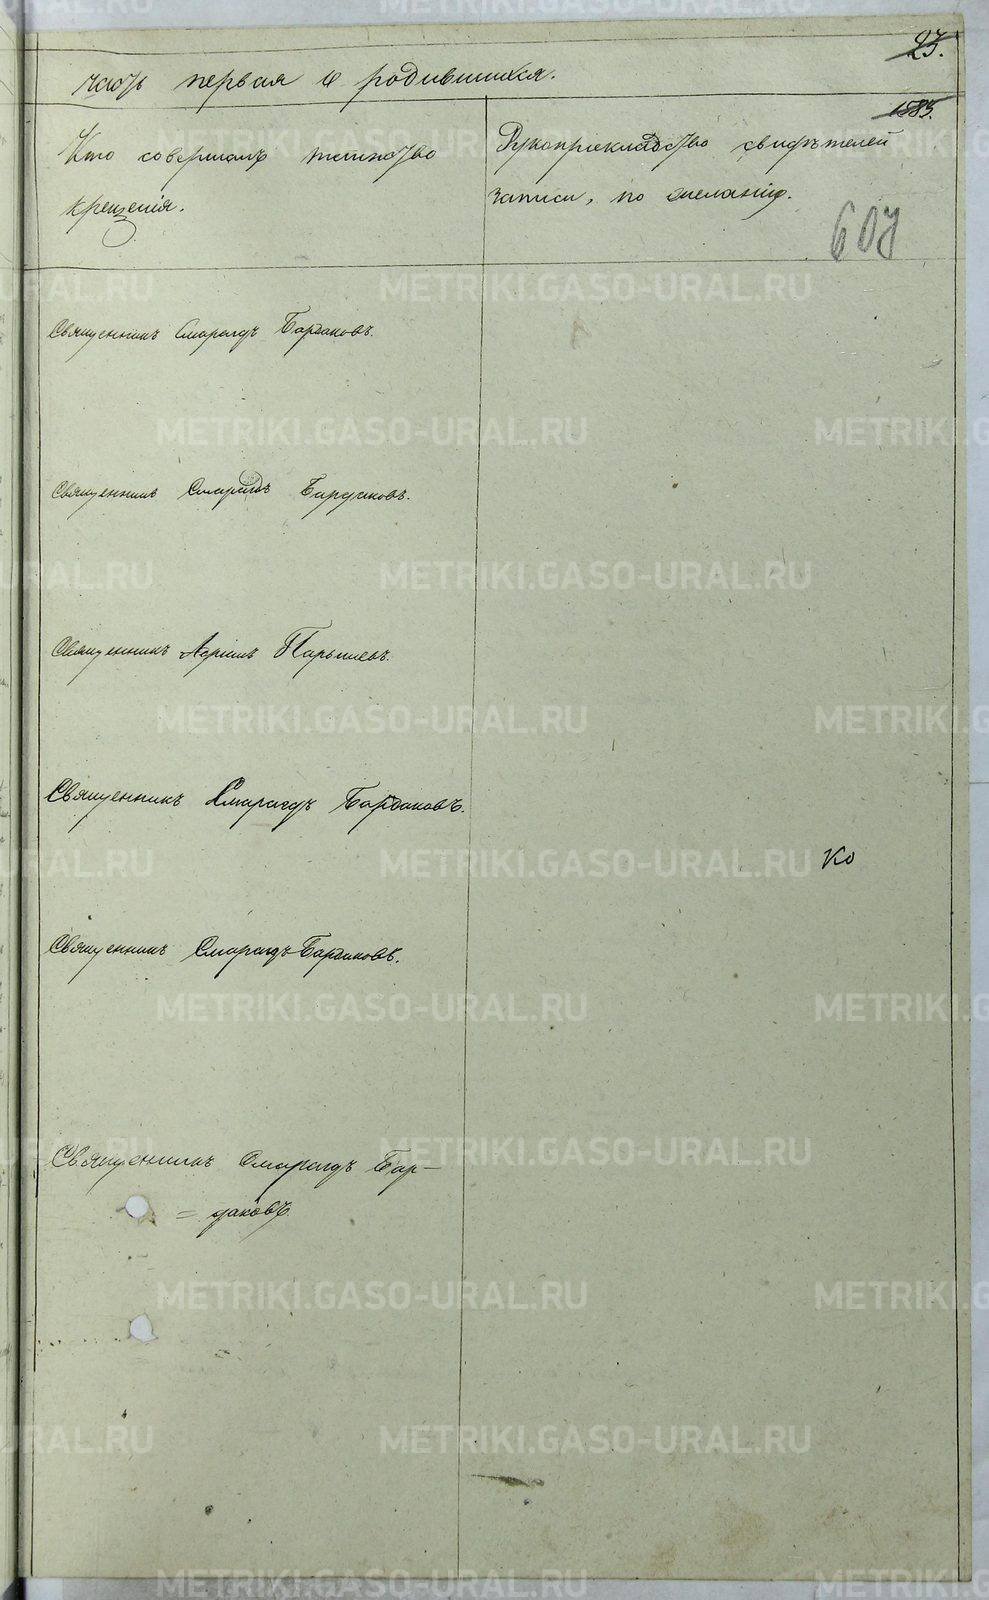 23.
часть первая о родившихся.
1883.
Кто совершалъ таинство
крещенія.
Рукоприкладство свидѣтелей
записи, по желанію.
607
Священникъ Смарагдъ Бардаковъ.
Священникъ Смарагдъ Бардаковъ.
Священникъ Парышевъ.
Священникъ Смарагдъ Бардаковъ.
Ко
Священникъ Смарагдъ Бардаковъ.
Священникъ Смарагдъ Бар-
= даковъ.
METRIKI.GASO-URAL.RU